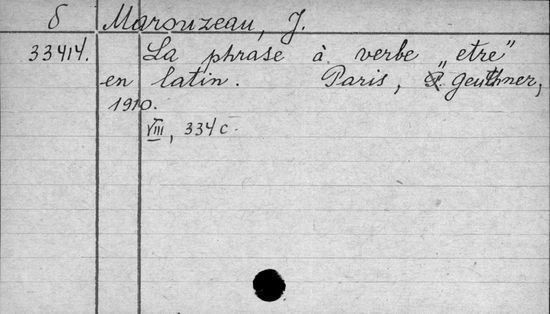 δ Marouzeau, J.
33414. La phrase à verbe „etre”
en latin. Paris, P. Geuthner,
1910.
VIII, 334 c.